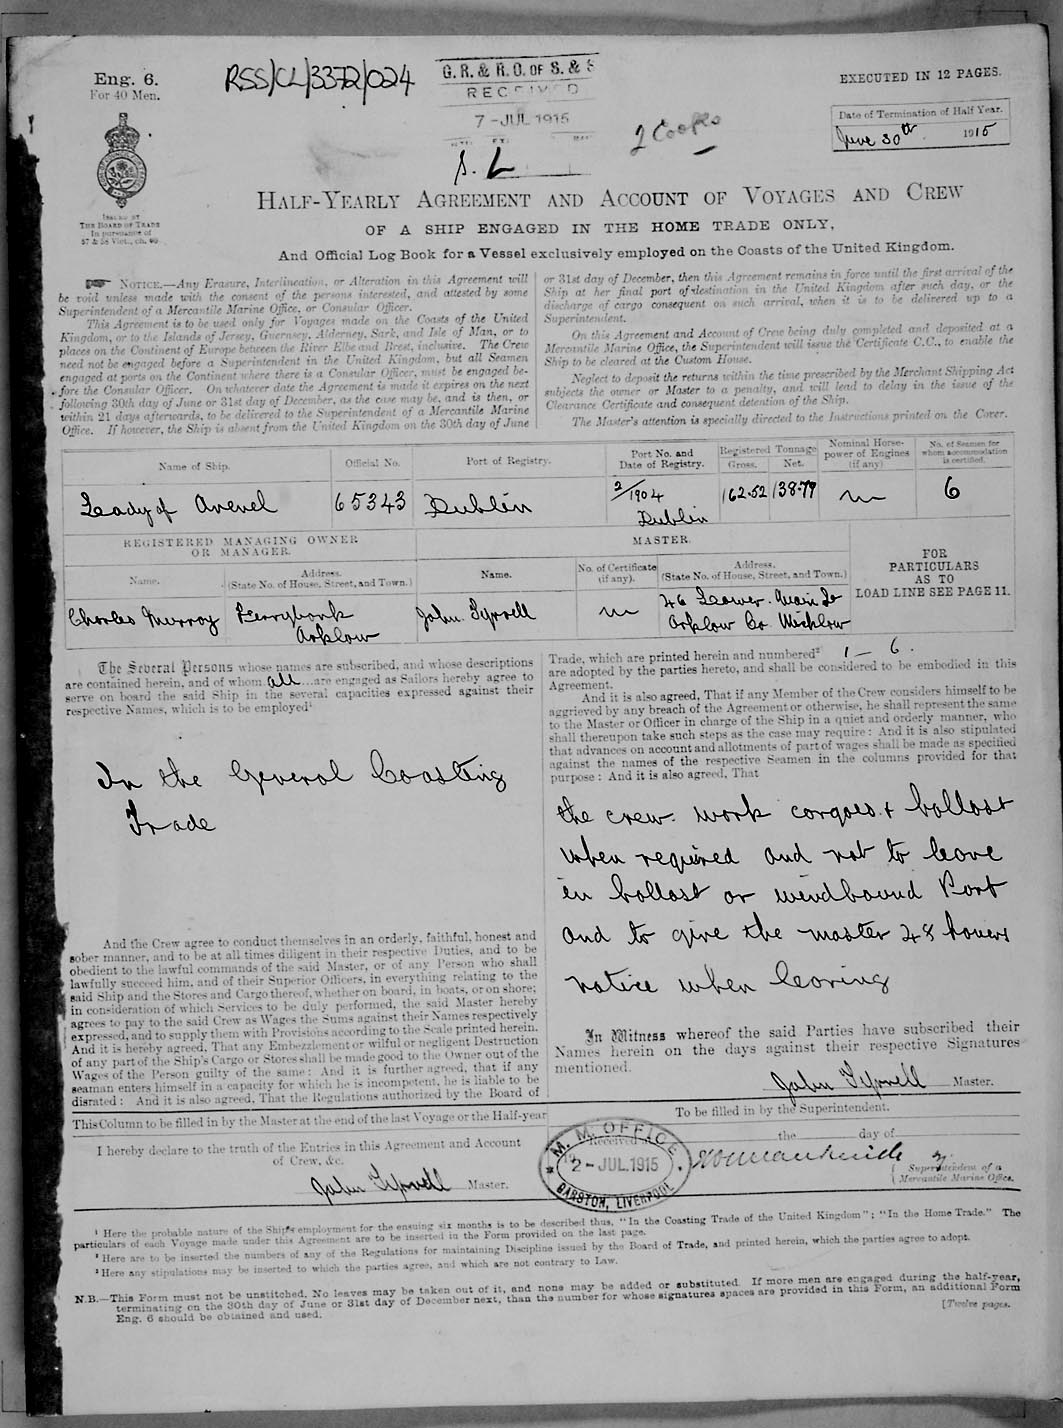 Eng. 6.
For 40 Men.
RSS/CL/3372/024
G. R. & R. O. OF S. & S
RECEIVED
7-JUL 1915
S. L
2 Cooks
EXECUTED IN 12 PAGES.
Date of Termination of Half Year.
June 30th 1915
ISSUED BY
THE BOARD OF TRADE
In pursuance of
57 & 58 Vict., ch. 60
HALF-YEARLY AGREEMENT AND ACCOUNT OF VOYAGES AND CREW
OF A SHIP ENGAGED IN THE HOME TRADE ONLY,
And Official Log Book for a Vessel exclusively employed on the Coasts of the United Kingdom.
NOTICE.—Any Erasure, Interlineation, or Alteration in this Agreement will
be void unless made with the consent of the persons interested, and attested by some
Superintendent of a Mercantile Marine Office, or Consular Officer.
This Agreement is to be used only for Voyages made on the Coasts of the United
Kingdom, or to the Islands of Jersey, Guernsey, Alderney, Sark, and Isle of Man, or to
places on the Continent of Europe between the River Elbe and Brest, inclusive. The Crew
need not be engaged before a Superintendent in the United Kingdom, but all Seamen
engaged at ports on the Continent where there is a Consular Officer, must be engaged be-
fore the Consular Officer. On whatever date the Agreement is made it expires on the next
following 30th day of June or 31st day of December, as the case may be, and is then, or
within 21 days afterwards, to be delivered to the Superintendent of a Mercantile Marine
Office. If however, the Ship is absent from the United Kingdom on the 30th day of June
or 31st day of December, then this Agreement remains in force until the first arrival of the
Ship at her final port of destination in the United Kingdom after such day, or the
discharge of cargo consequent on such arrival, when it is to be delivered up to a
Superintendent.
On this Agreement and Account of Crew being duly completed and deposited at a
Mercantile Marine Office, the Superintendent will issue the Certificate C.C., to enable the
Ship to be cleared at the Custom House.
Neglect to deposit the returns within the time prescribed by the Merchant Shipping Act
subjects the owner or Master to a penalty, and will lead to delay in the issue of the
Clearance Certificate and consequent detention of the Ship.
The Master's attention is specially directed to the Instructions printed on the Cover.
Name of Ship. Official No. Port of Registry. Port No. and Date of Registry. Registered Tonnage Gross. Net. Nominal Horse-power of Engines (if any) No. of Seamen for whom accommodation is certified.
Lady of Avenel 65343 Dublin 2/1904 Dublin 162.52 138.79 6
REGISTERED MANAGING OWNER
OR MANAGER.
MASTER.
Name. Address. (State No. of House, Street, and Town.) Name. No. of Certificate (if any). Address. (State No. of House, Street, and Town.)
FOR
PARTICULARS
AS TO
LOAD LINE SEE PAGE 11.
Charles Murray Ferrybank Arklow John Tyrrell 46 Lower Main St Arklow Co. Wicklow
The Several Persons whose names are subscribed, and whose descriptions
are contained herein, and of whom all are engaged as Sailors hereby agree to
serve on board the said Ship in the several capacities expressed against their
respective Names, which is to be employed¹
In the General Coasting
Trade
And the Crew agree to conduct themselves in an orderly, faithful, honest and
sober manner, and to be at all times diligent in their respective Duties, and to be
obedient to the lawful commands of the said Master, or of any Person who shall
lawfully succeed him, and of their Superior Officers, in everything relating to the
said Ship and the Stores and Cargo thereof, whether on board, in boats, or on shore;
in consideration of which Services to be duly performed, the said Master hereby
agrees to pay to the said Crew as Wages the Sums against their Names respectively
expressed, and to supply them with Provisions according to the Scale printed herein.
And it is hereby agreed, That any Embezzlement or wilful or negligent Destruction
of any part of the Ship's Cargo or Stores shall be made good to the Owner out of the
Wages of the Person guilty of the same: And it is further agreed, that if any
seaman enters himself in a capacity for which he is incompetent, he is liable to be
disrated: And it is also agreed, That the Regulations authorized by the Board of
Trade, which are printed herein and numbered² 1 — 6.
are adopted by the parties hereto, and shall be considered to be embodied in this
Agreement.
And it is also agreed, That if any Member of the Crew considers himself to be
aggrieved by any breach of the Agreement or otherwise, he shall represent the same
to the Master or Officer in charge of the Ship in a quiet and orderly manner, who
shall thereupon take such steps as the case may require: And it is also stipulated
that advances on account and allotments of part of wages shall be made as specified
against the names of the respective Seamen in the columns provided for that
purpose: And it is also agreed, That
the crew work cargoes & ballast
when required and not to leave
in ballast or windbound Port
and to give the master 48 hours
notice when leaving
In Witness whereof the said Parties have subscribed their
Names herein on the days against their respective Signatures
mentioned.
John Tyrrell Master.
This Column to be filled in by the Master at the end of the last Voyage or the Half-year
I hereby declare to the truth of the Entries in this Agreement and Account
of Crew, &c.
John Tyrrell Master.
To be filled in by the Superintendent.
Received at
the day of
19
M. M. OFFICE
2-JUL.1915
GARSTON, LIVERPOOL
Superintendent of a
Mercantile Marine Office.
¹ Here the probable nature of the Ship's employment for the ensuing six months is to be described thus, "In the Coasting Trade of the United Kingdom"; "In the Home Trade." The
particulars of each Voyage made under this Agreement are to be inserted in the Form provided on the last page.
² Here are to be inserted the numbers of any of the Regulations for maintaining Discipline issued by the Board of Trade, and printed herein, which the parties agree to adopt.
³ Here any stipulations may be inserted to which the parties agree, and which are not contrary to Law.
N.B.—This Form must not be unstitched. No leaves may be taken out of it, and none may be added or substituted. If more men are engaged during the half-year,
terminating on the 30th day of June or 31st day of December next, than the number for whose signatures spaces are provided in this Form, an additional Form
Eng. 6 should be obtained and used.
[Twelve pages.